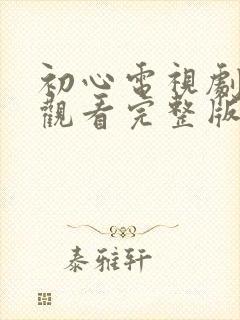 初心電視劇
觀看完整版
泰雅轩